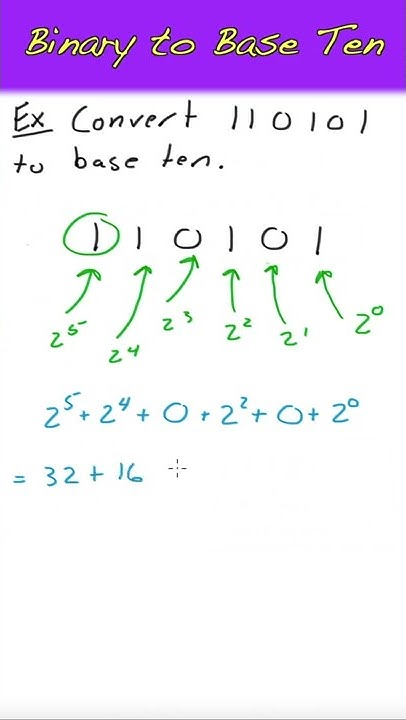 Binary to Base Ten
Ex Convert 110101
to base ten.
1 1 0 1 0 1
2⁵ 2⁴ 2³ 2² 2¹ 2⁰
2⁵ + 2⁴ + 0 + 2² + 0 + 2⁰
= 32 + 16